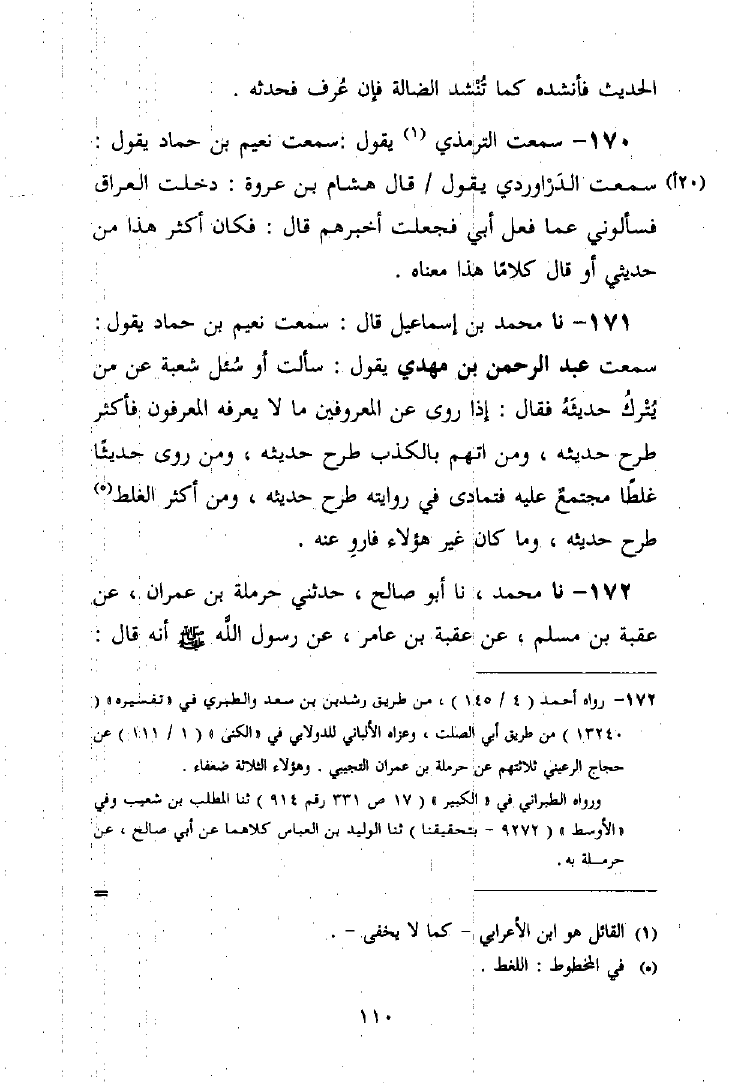 الحديث فأنشده كما تُنْشد الضالة فإن عُرف فحدثه .
١٧٠- سمعت الترمذي (١) يقول :سمعت نعيم بن حماد يقول :
(٢٠أ) سمعت الدَرْاوردي يقول / قال هشام بن عروة : دخلت العراق
فسألوني عما فعل أبي فجعلت أخبرهم قال : فكان أكثر هذا من
حديثي أو قال كلامًا هذا معناه .
١٧١- نا محمد بن إسماعيل قال : سمعت نعيم بن حماد يقول :
سمعت عبد الرحمن بن مهدي يقول : سألت أو سُئل شعبة عن من
يُتْركُ حديثَهُ فقال : إذا روى عن المعروفين ما لا يعرفه المعرفون فأكثر
طرح حديثه ، ومن اتهم بالكذب طرح حديثه ، ومن روى حديثًا
غلطًا مجتمعٌ عليه فتمادى في روايته طرح حديثه ، ومن أكثر الغلط(٥)
طرح حديثه ، وما كان غير هؤلاء فاروِ عنه .
١٧٢- نا محمد ، نا أبو صالح ، حدثني حرملة بن عمران ، عن
عقبة بن مسلم ، عن عقبة بن عامر ، عن رسول اللَّه ﷺ أنه قال :
١٧٢- رواه أحمد ( ٤ / ١٤٥ ) ، من طريق رشدين بن سعد والطبري في «تفسيره» (
١٣٢٤٠ ) من طريق أبي الصلت ، وعزاه الألباني للدولابي في «الكنى » ( ١ / ١١١ ) عن
حجاج الرعيني ثلاثتهم عن حرملة بن عمران التجيبي . وهؤلاء الثلاثة ضعفاء .
ورواه الطبراني في « الكبير » ( ١٧ ص ٣٣١ رقم ٩١٤ ) ثنا المطلب بن شعيب وفي
«الأوسط » ( ٩٢٧٢ - بتحقيقنا ) ثنا الوليد بن العباس كلاهما عن أبي صالح ، عن
حرملة به .
=
(١) القائل هو ابن الأعرابي - كما لا يخفى - .
(٥) في المخطوط : اللغط .
١١٠